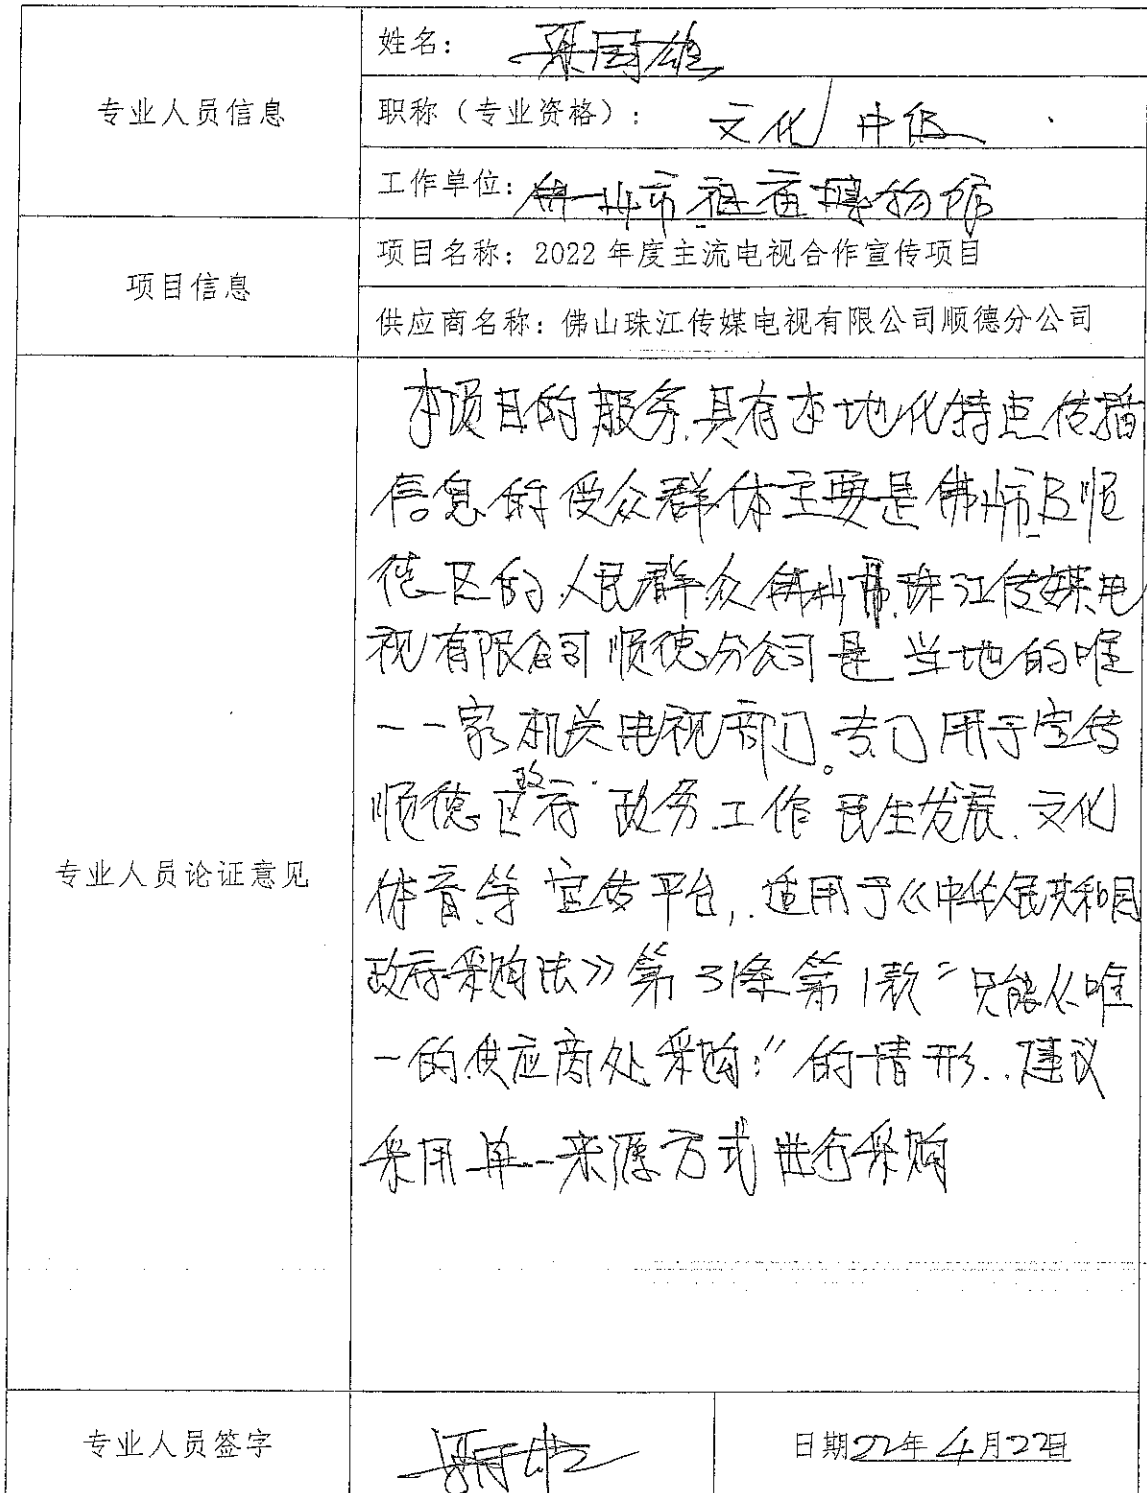 专业人员信息
姓名：
职称（专业资格）： 文化 中级
工作单位：佛山市祖庙博物馆
项目信息
项目名称：2022 年度主流电视合作宣传项目
供应商名称：佛山珠江传媒电视有限公司顺德分公司
专业人员论证意见
本项目的服务具有本地化特点传播
信息的受众群体主要是佛山市及顺
德区的人民群众佛山市珠江传媒电
视有限公司顺德分公司是当地的唯
一一家机关电视部门。专门用于宣传
顺德区政府政务工作民生发展、文化
体育等宣传平台，适用于《中华人民共和国
政府采购法》第31条第1款“只能从唯
一的供应商处采购；”的情形。建议
采用单一来源方式进行采购
专业人员签字
日期22年4月22日